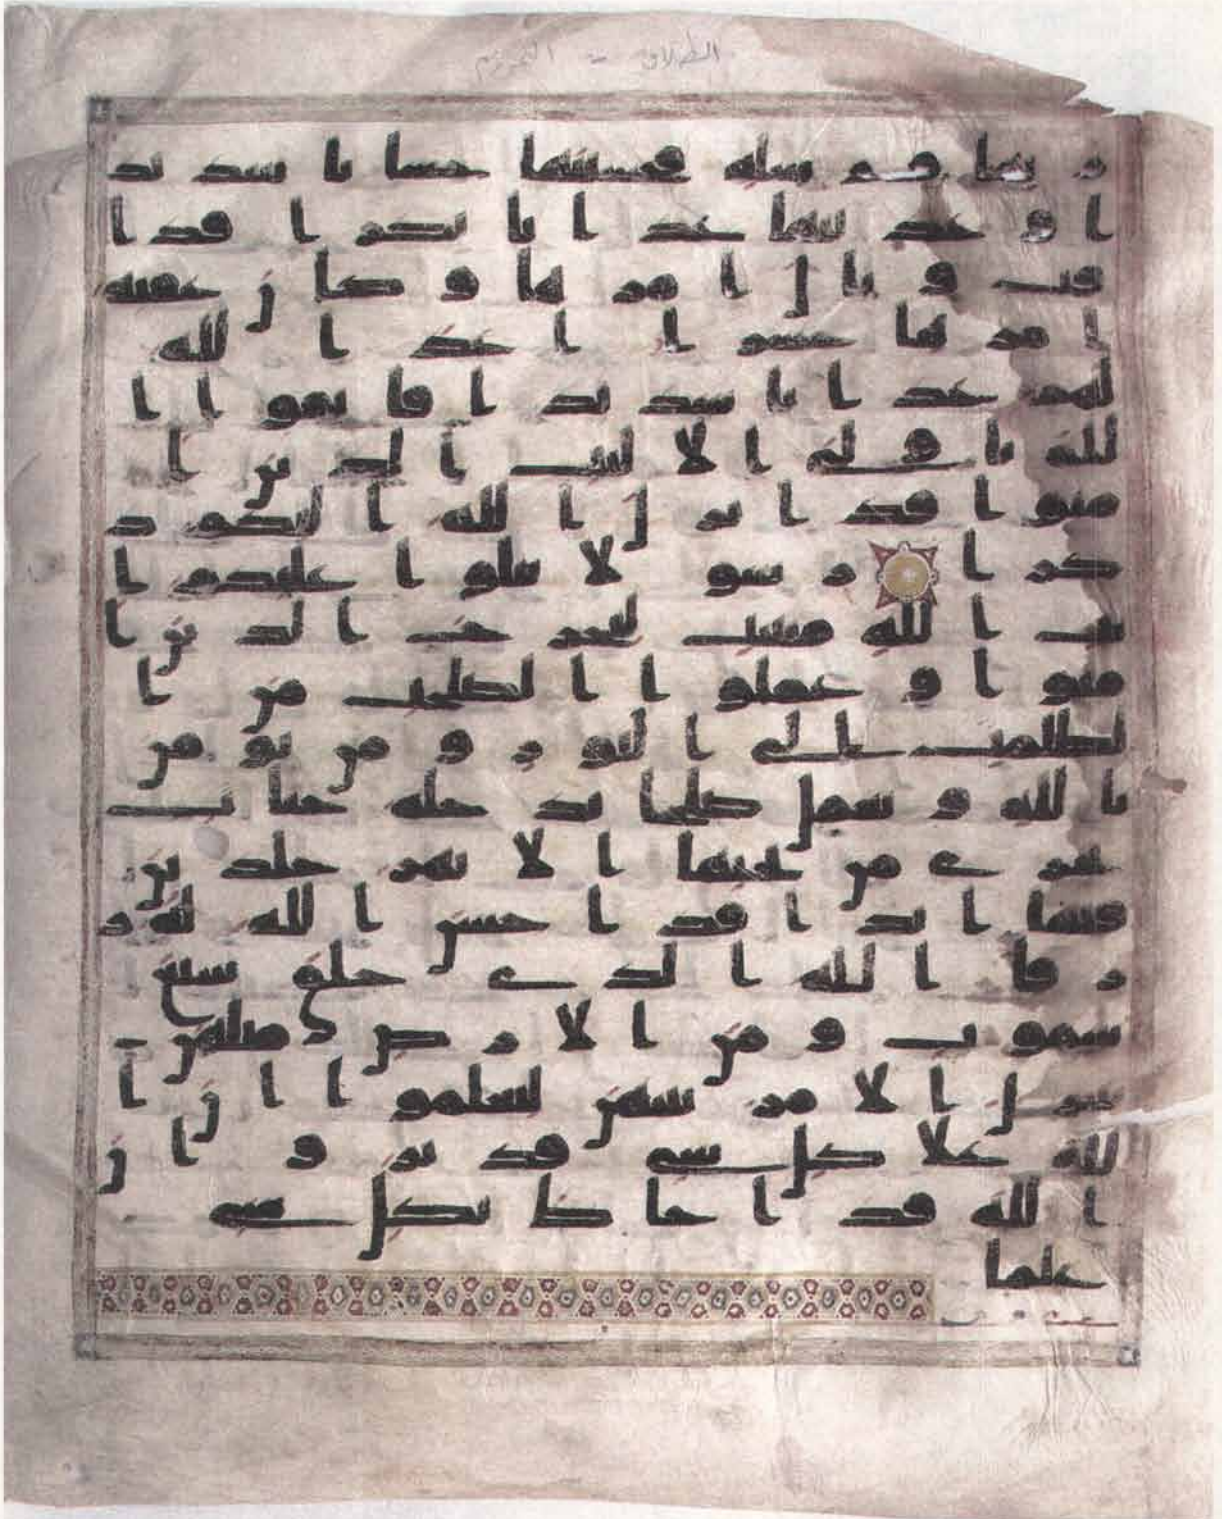 الطلاق - التحريم
ربها و رسله فحسبنها حسابا شديد
ا و عذبنها عذابا نكرا فذا
قت وبال امرها وكان عقبة
امرها خسرا اعد الله
لهم عذابا شديدا فاتقوا ا
لله ياولى الالبب الذين ا
منوا قد انزل الله اليكم ذ
كرا رسولا يتلوا عليكم ا
يت الله مبينت ليخرج الذين ا
منوا وعملوا الصلحت من ا
لظلمت الى النور ومن يومن
بالله ويعمل صلحا يدخله جنات
تجرى من تحتها الانهر خلدين
فيها ابدا قد احسن الله له ر
زقا الله الذى خلق سبع
سموت ومن الارض مثلهن يـ
تنزل الامر بينهن لتعلموا ان ا
لله علا كل شى قدير وان
الله قد احاط بكل شى
علما